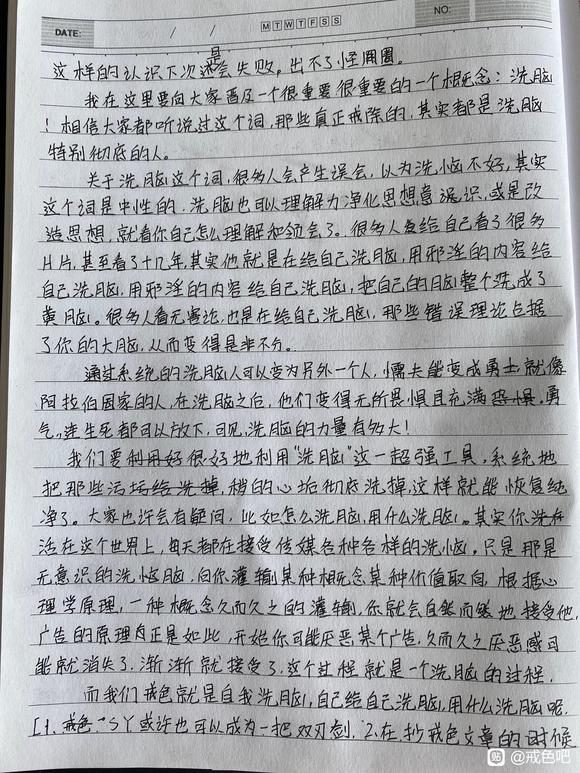 DATE: / / MTWTFSS NO:
这样的认识下次还是会失败，出不了怪圈圈。
我在这里要向大家普及一个很重要很重要的一个概念：洗脑
！相信大家都听说过这个词，那些真正戒除的，其实都是洗脑
特别彻底的人。
关于洗脑这个词，很多人会产生误会，以为洗恼不好，其实
这个词是中性的，洗脑也可以理解为净化思想意识，或是改
造思想，就看你自己怎么理解和领会了。很多人给自己看了很多
片片，甚至看了十几年，其实他就是在给自己洗脑，用邪淫的内容给
自己洗脑，用邪淫的内容给自己洗脑，把自己的脑整个洗成了
黄脑。很多人看无害论，也是在给自己洗脑，那些错误理论占据
了你的大脑，从而变得是非不分。
通过系统的洗脑人可以变为另外一个人，懦夫能变成勇士就像
阿拉伯国家的人，在洗脑之后，他们变得无所畏惧且充满恐惧，勇
气，连生死都可以放下，可见，洗脑的力量有多大！
我们要利用好很好地利用“洗脑”这一超强工具，系统地
把那些污垢给洗掉，稍的心垢彻底洗掉，这样就能恢复纯
净了。大家也许会有疑问，比如怎么洗脑，用什么洗脑。其实你洗
活在这个世界上，每天都在接受传媒各种各样的洗恼。只是那是
无意识的洗恼脑，向你灌输某种概念某种价值取向，根据心
理学原理，一种概念久而久之的灌输，你就会自然而然地接受他，
广告的原理正是如此，开始你可能厌恶某个广告，久而久之厌恶感可
能就消失了，渐渐就接受了，这个过程就是一个洗脑的过程，
而我们戒色就是自我洗脑，自己给自己洗脑，用什么洗脑呢，
[1、戒色~SY或许也可以成为一把双刃剑，2、在抄戒色文章的时候
贴 @戒色吧